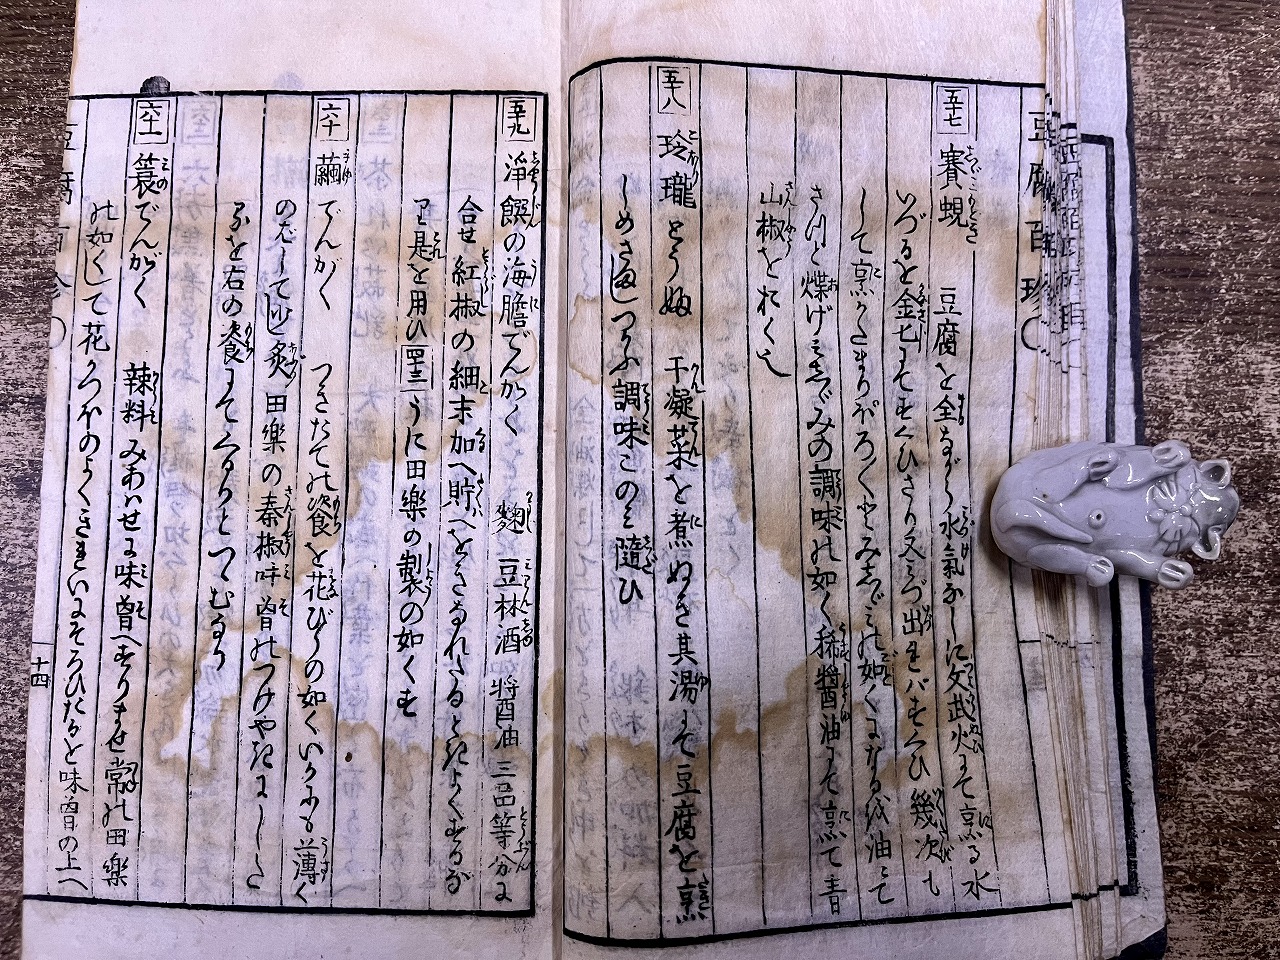 豆腐百珍
五十七 賽蜆 豆腐を全ながら水氣なしに文武火にて烹る水
いづるを金匕にてすくひさり又々づ出ればすくひ幾次も
して烹かたまりぽろ〳〵とみしゞみの如くになる後油にて
さつと煠げみしゞみの調味の如く稀醬油にて烹て青
山椒をおく也
五十八 玲瓏とうふ 干凝菜を煮ぬき其湯にて豆腐を烹
しめさましつかふ調味このみ隨ひ
五十九 淨饌の海膽でんがく 麴 豆林酒 醬油 三品等分に
合せ紅椒の細末加へ貯へをきなれたると紀よくするが
是を用ひ四十三うに田樂の製の如くす
六十 繭でんがく つきたての餈を花びらの如くいかにも薄く
のばして炙 田樂の秦椒味曾のつけやきにした
るを右の餈にてくるりとつゝむなり
六十一 簑でんがく 辣料みあはせに味曾へすりませ常の田樂
の如くして花かつほのよくきれいにそろひたるを味曾の上へ
十四